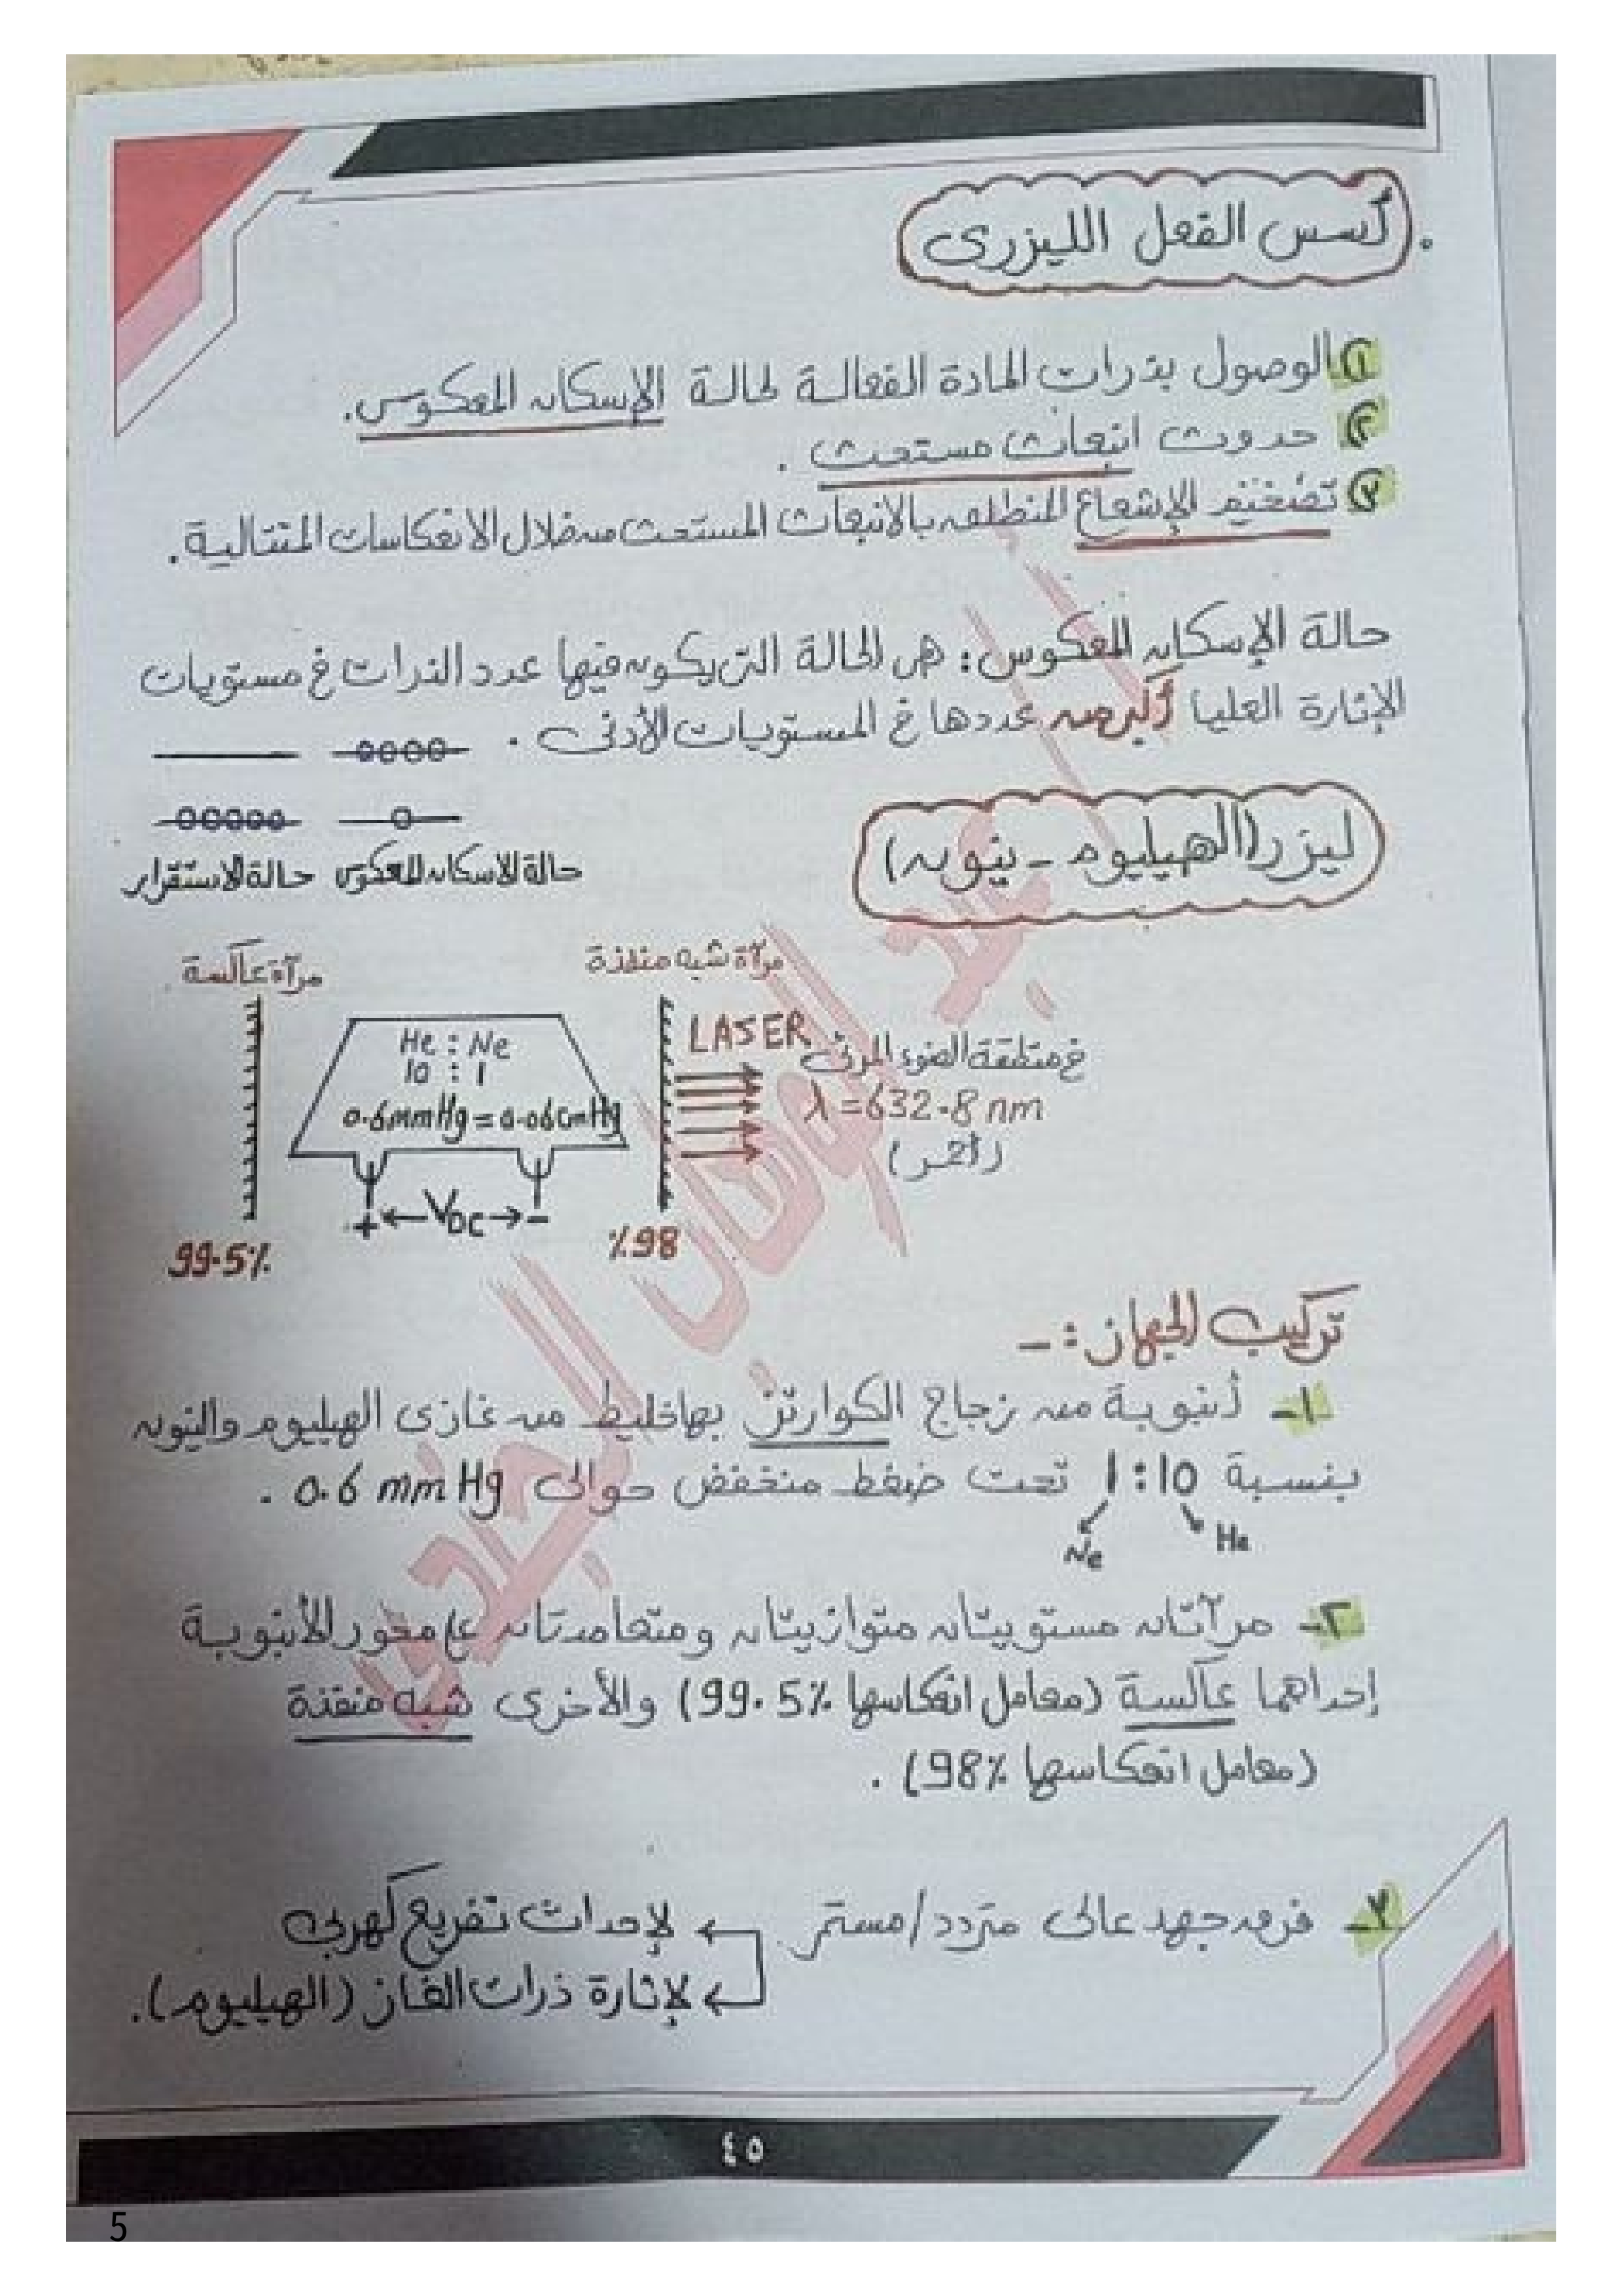 أسس الفعل الليزرى
① الوصول بذرات المادة الفعالة لحالة الإسكان المعكوس.
② حدوث انبعاث مستحث.
③ تضخيم الإشعاع المنطلق بالانبعاث المستحث من خلال الانعكاسات المتتالية.
حالة الإسكان المعكوس: هى الحالة التى يكون فيها عدد الذرات فى مستويات
الإثارة العليا أكبر من عددها فى المستويات الأدنى.
حالة الاسكان المعكوس
حالة الاستقرار
ليزر (الهيليوم - نيون)
مرآة شبه منفذة
مرآة عاكسة
He : Ne
10 : 1
0.6 mm Hg = 0.06 cm Hg
LASER
فى منطقة الضوء المرئى
λ = 632.8 nm
(أحمر)
+ ← VDC → -
99.5%
%98
تركيب الجهاز :-
١- أنبوبة من زجاج الكوارتز بها خليط من غازى الهيليوم والنيون
بنسبة 1:10 تحت ضغط منخفض حوالى 0.6 mm Hg .
Ne He
٢- مرآتان مستويتان متوازيتان ومتعامدتان على محور الأنبوبة
إحداهما عاكسة (معامل انعكاسها 99.5%) والأخرى شبه منفذة
(معامل انعكاسها 98%) .
٣- فرق جهد عالى متردد/مستمر ← لإحداث تفريغ كهربى
← لإثارة ذرات الغاز (الهيليوم).
عبد الوهاب الجندى
٤٥
5